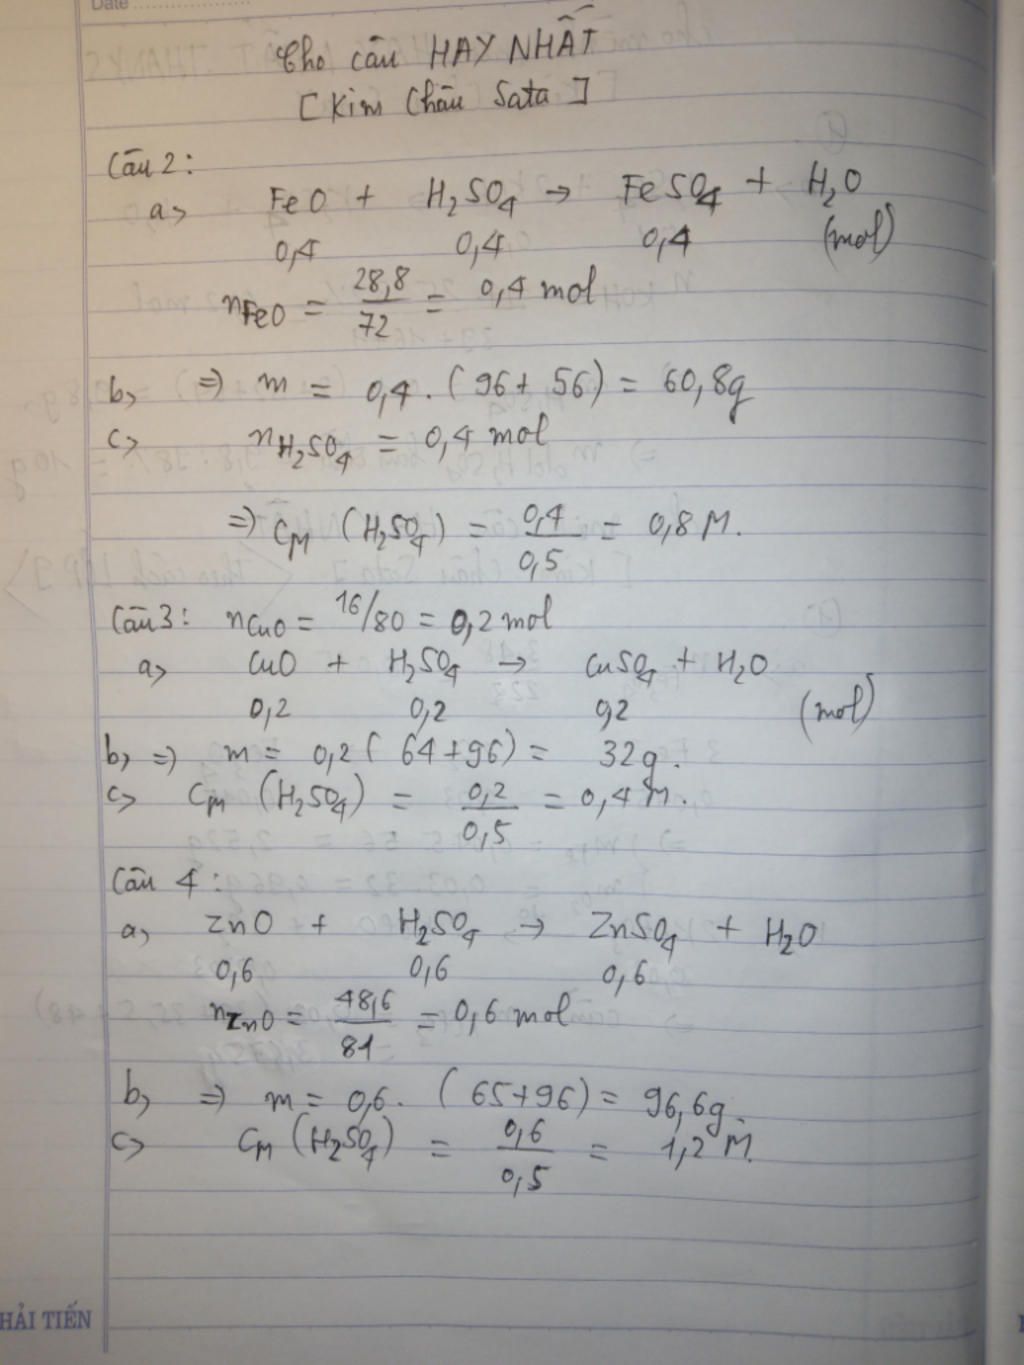 Date
Cho câu HAY NHẤT
[Kim Châu Sata]
Câu 2:
a> FeO + H₂SO₄ → FeSO₄ + H₂O
0,4 0,4 0,4 (mol)
nFeO = 28,8/72 = 0,4 mol
b, => m = 0,4 . (96 + 56) = 60,8g
c> nH₂SO₄ = 0,4 mol
=> CM (H₂SO₄) = 0,4/0,5 = 0,8 M.
Câu 3: nCuO = 16/80 = 0,2 mol
a> CuO + H₂SO₄ → CuSO₄ + H₂O
0,2 0,2 0,2 (mol)
b, => m = 0,2 (64+96) = 32g.
c> CM (H₂SO₄) = 0,2/0,5 = 0,4 M.
Câu 4:
a, ZnO + H₂SO₄ → ZnSO₄ + H₂O
0,6 0,6 0,6
nZnO = 48,6/81 = 0,6 mol
b, => m = 0,6. (65+96) = 96,6g.
c> CM (H₂SO₄) = 0,6/0,5 = 1,2 M.
HẢI TIẾN